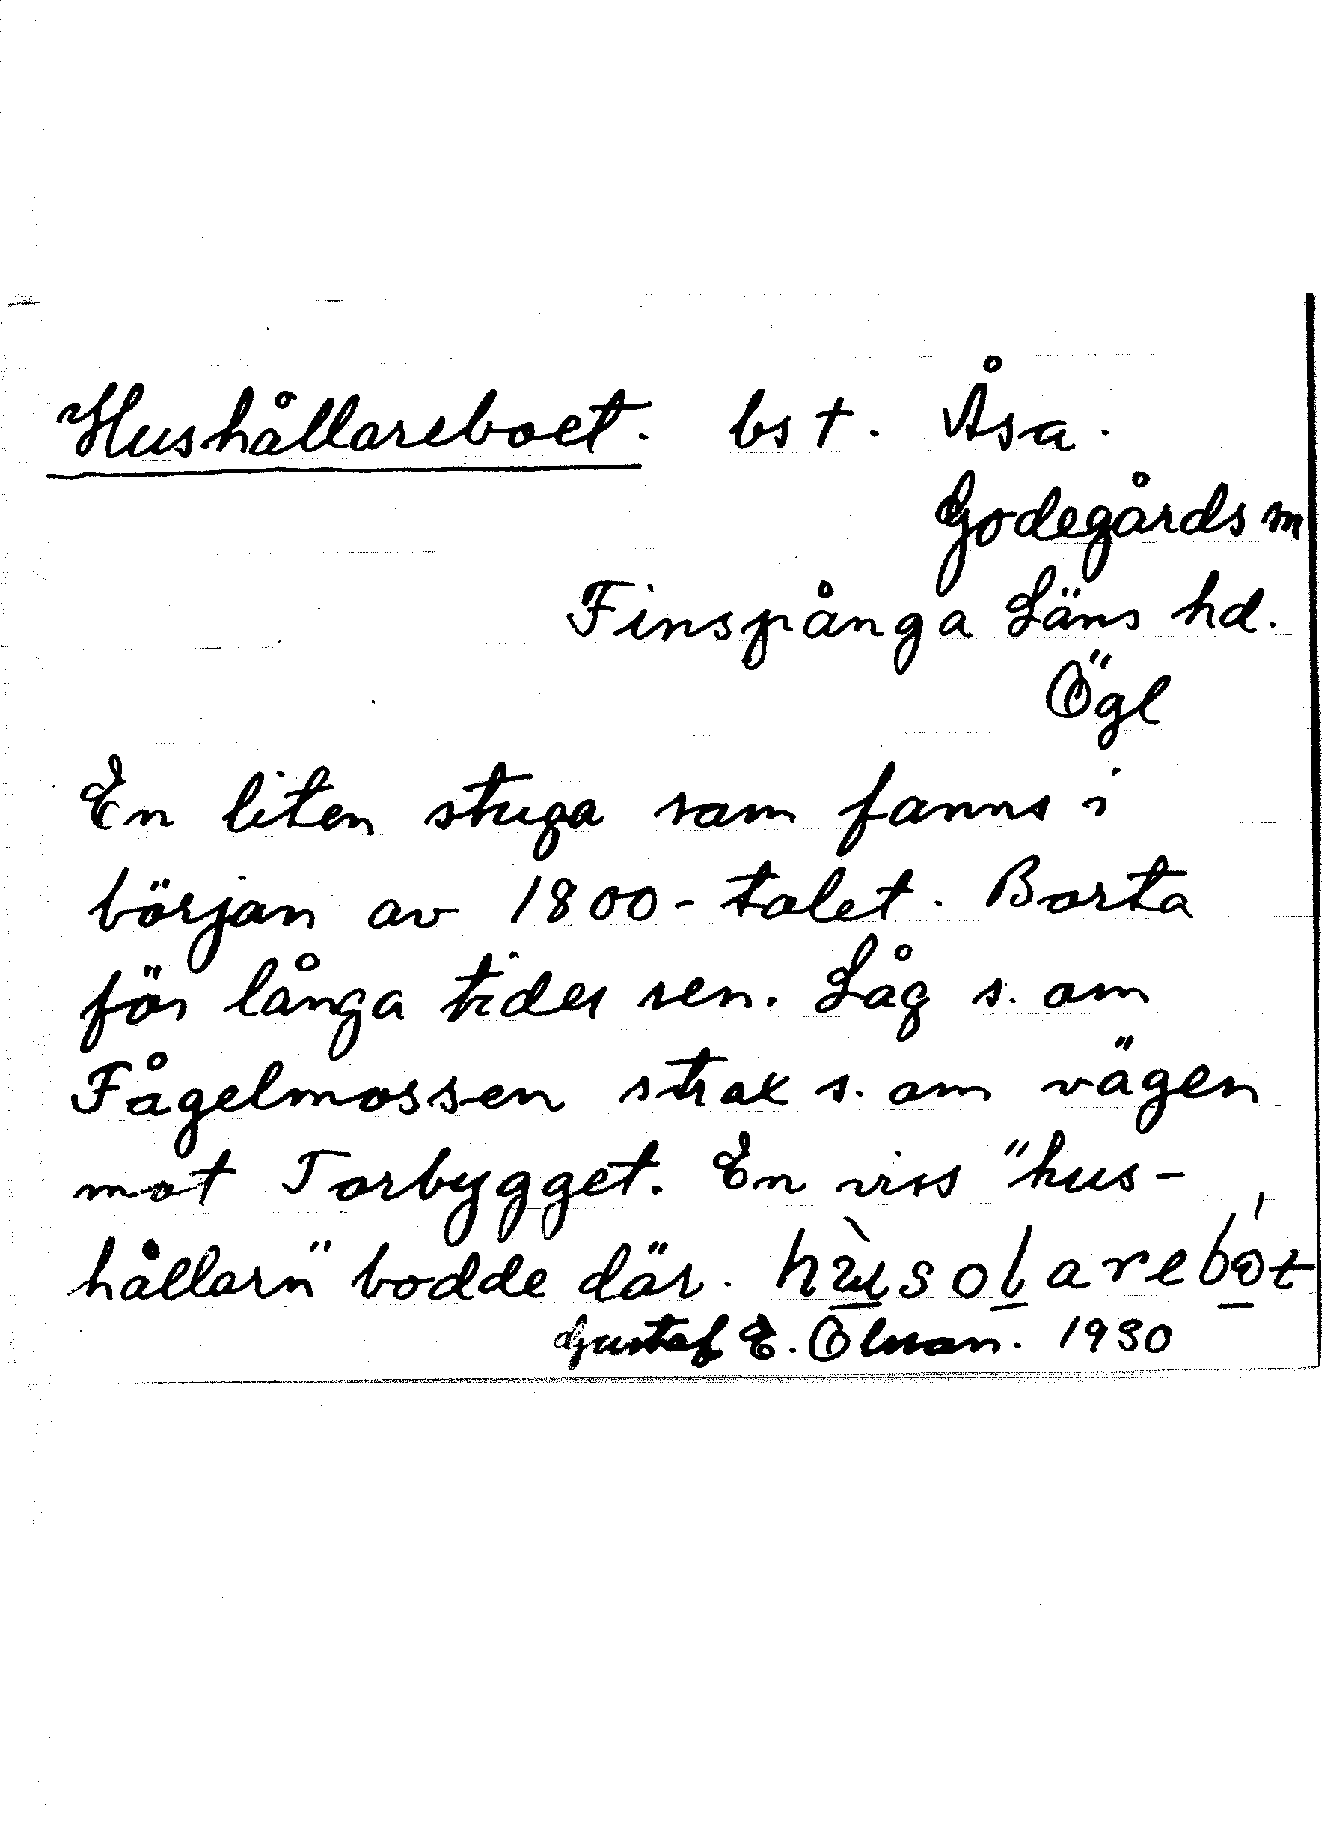 Hushållareboet. bst. Åsa.
Godegårds sn
Finspånga Läns hd.
Ögl
En liten stuga som fanns i
början av 1800-talet. Borta
för långa tider sen. Låg s. om
Fågelmossen strax s. om vägen
mot Torbygget. En viss "hus-
hållarn" bodde där.
Gustaf E. Olsson. 1930